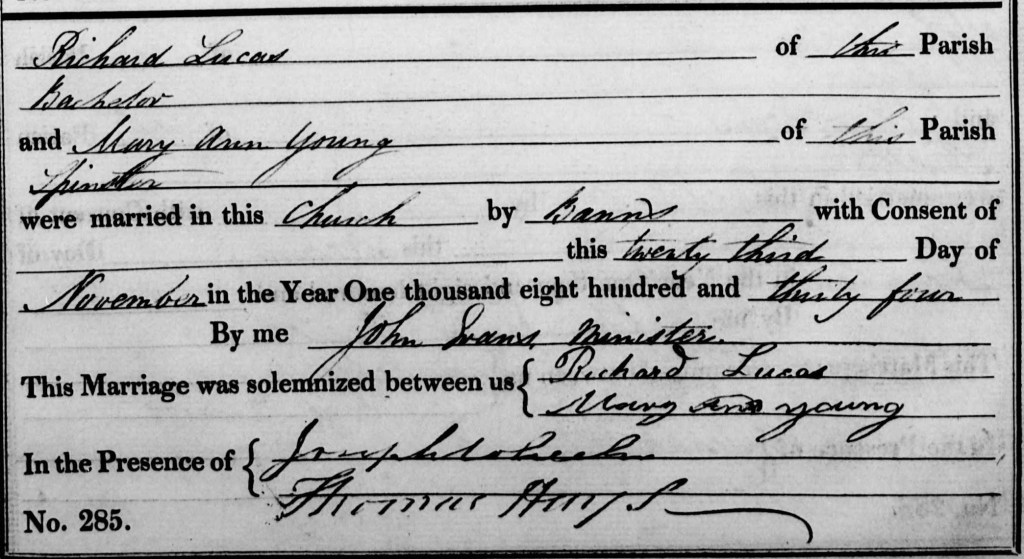 Richard Lucas of this Parish
Bachelor
and Mary Ann Young of this Parish
Spinster
were married in this Church by Banns with Consent of
this twenty third Day of
November in the Year One thousand eight hundred and thirty four
By me John Evans, Minister.
This Marriage was solemnized between us { Richard Lucas
Mary Ann young
In the Presence of { Joseph
Thomas
No. 285.